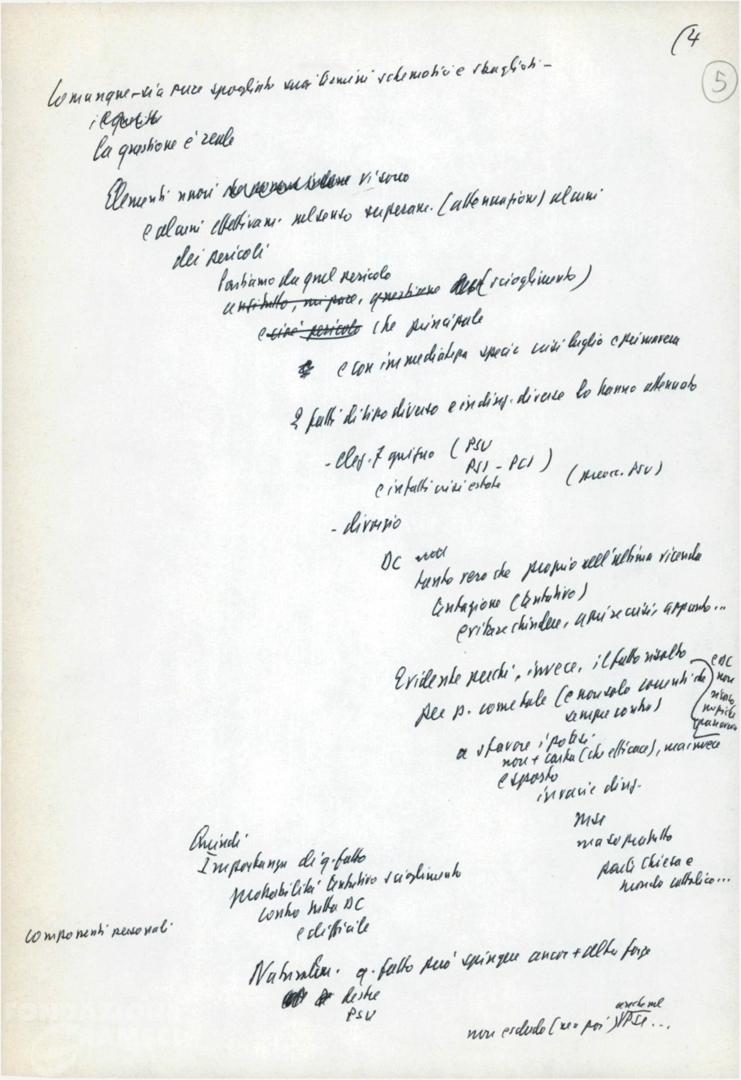 (4
5
Comunque - sia pure spogliato suoi termini schematici e sbagliati -
la questione è reale
Elementi nuovi vi sono
e alcuni effettivam. nel senso superam. (attenuazione) alcuni
dei pericoli
Partiamo da quel pericolo
antitutto, mi pare, questione (scioglimento)
e cioè pericolo che principale
e con immediatezza specie crisi luglio e primavera
2 fatti di tipo diverso e in direz. diverse lo hanno attenuato
- elez. 7 giugno ( PSU
PSI - PCI )
e infatti crisi estate (preocc. PSU)
- divorzio
DC
tanto vero che proprio nell'ultima vicenda
tentazione (tentativo)
evitare chiudere, aprire crisi, appunto...
Evidente perché, invece, il fatto risolto
per p. come tale (e non solo correnti di
sempre contro)
e DC
non
a sfavore ipotesi
non + carta (che efficace), ma invece
esposto
in varie direz.
MSI
ma soprattutto
parti Chiesa e
mondo cattolico...
Quindi
Importanza di q. fatto
probabilità tentativo scioglimento
contro tutta DC
è difficile
componenti personali
Naturalm. q. fatto può spingere ancor + altre forze
destre
PSU
non escludo (ma poi) anche nel PSI...